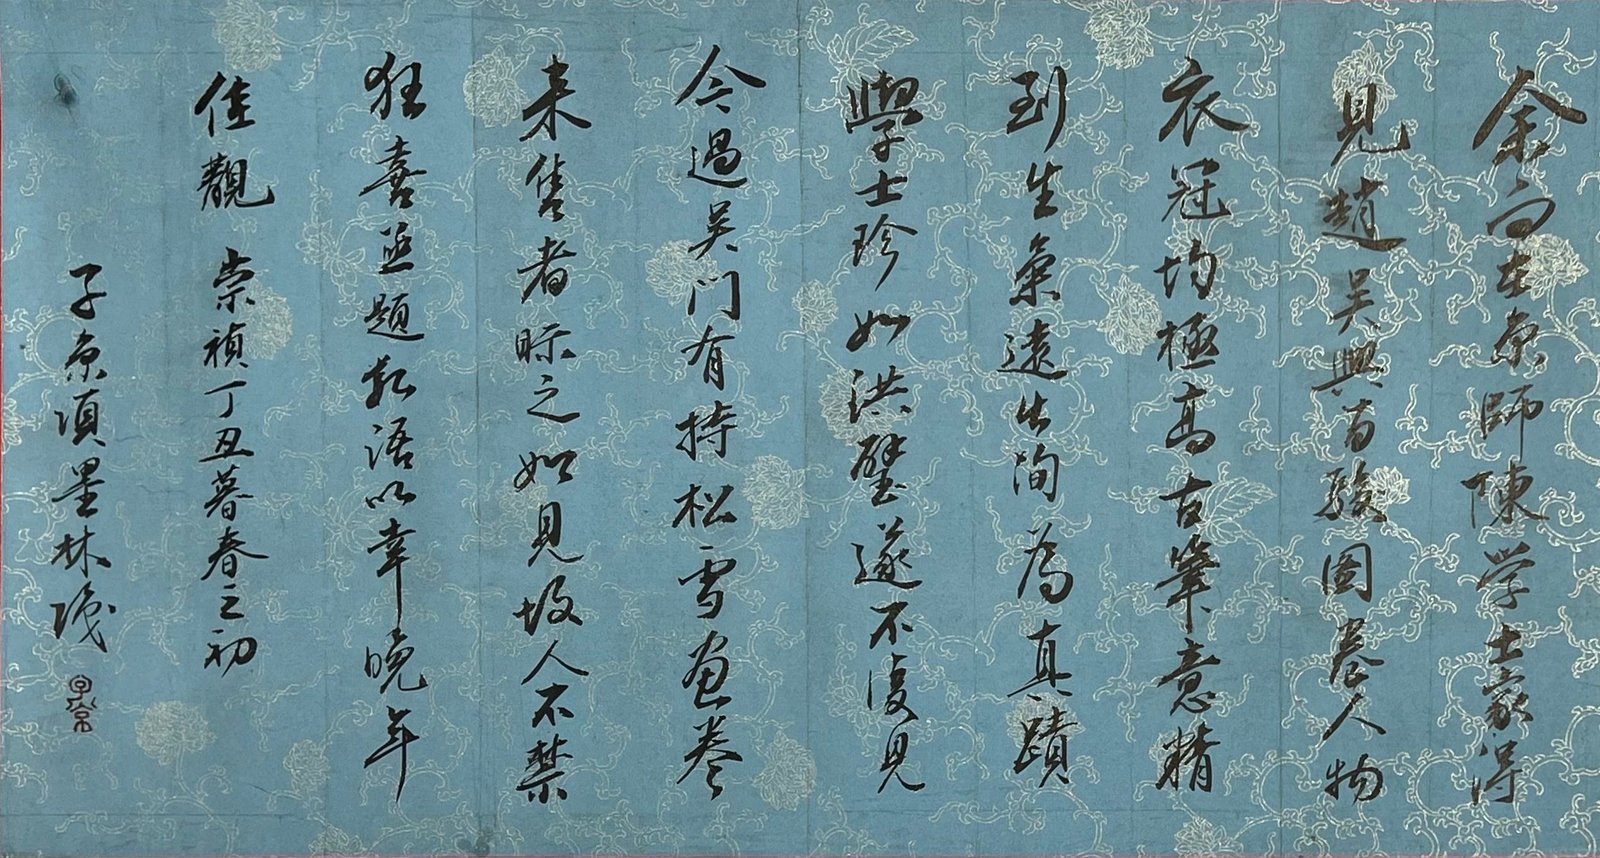 余向在京師陳学士家得
見趙吳興百駿圖卷人物
衣冠均極高古筆意精
到生氣遠出洵為真蹟
學士珍如洪璧遂不復見
今過吳门有持松雪画卷
来售者眎之如見故人不禁
狂喜亟題數语以幸晚年
佳觀 崇禎丁丑暮春之初
子京項墨林識
子京